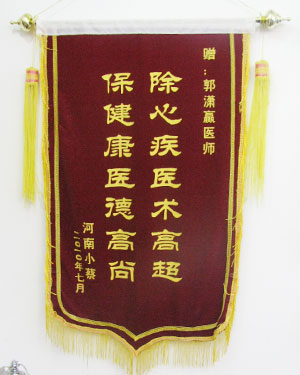 赠：郭潇赢医师
除心疾医术高超
保健康医德高尚
河南小蔡
二〇一〇年七月